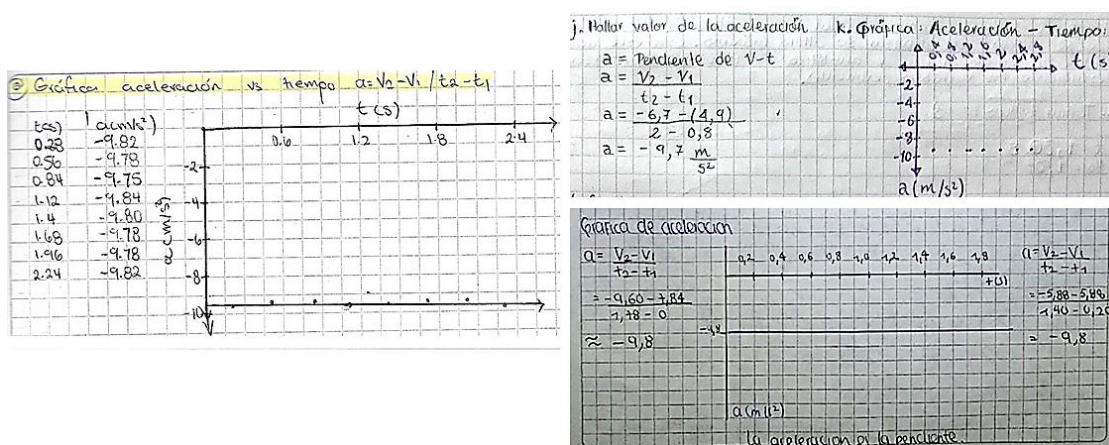 Gráfica aceleración vs tiempo a=V2-V1/t2-t1
t(s)
t(s) a(m/s²)
0.28 -9.82
0.56 -9.78
0.84 -9.75
1.12 -9.84
1.4 -9.80
1.68 -9.78
1.96 -9.78
2.24 -9.82
0.6 1.2 1.8 2.4
-2
-4
-6
-8
-10
a(m/s²)
j. Hallar valor de la aceleración
a = Pendiente de V-t
a = V2 - V1
t2 - t1
a = -6,7 - (4,9)
2 - 0,8
a = -9,7 m
s²
K. Gráfica: Aceleración - Tiempo:
t(s
-2
-4
-6
-8
-10
a(m/s²)
Grafica de aceleracion
a= V2-V1
t2-t1
= -9,60-7,84
1,78-0
≈ -9,8
0,2 0,4 0,6 0,8 1,0 1,2 1,4 1,6 1,8
t(s)
-9,8
a(m/s²)
a= V2-V1
t2-t1
= -5,88-5,88
1,40-0,20
= -9,8
La aceleracion es la pendiente